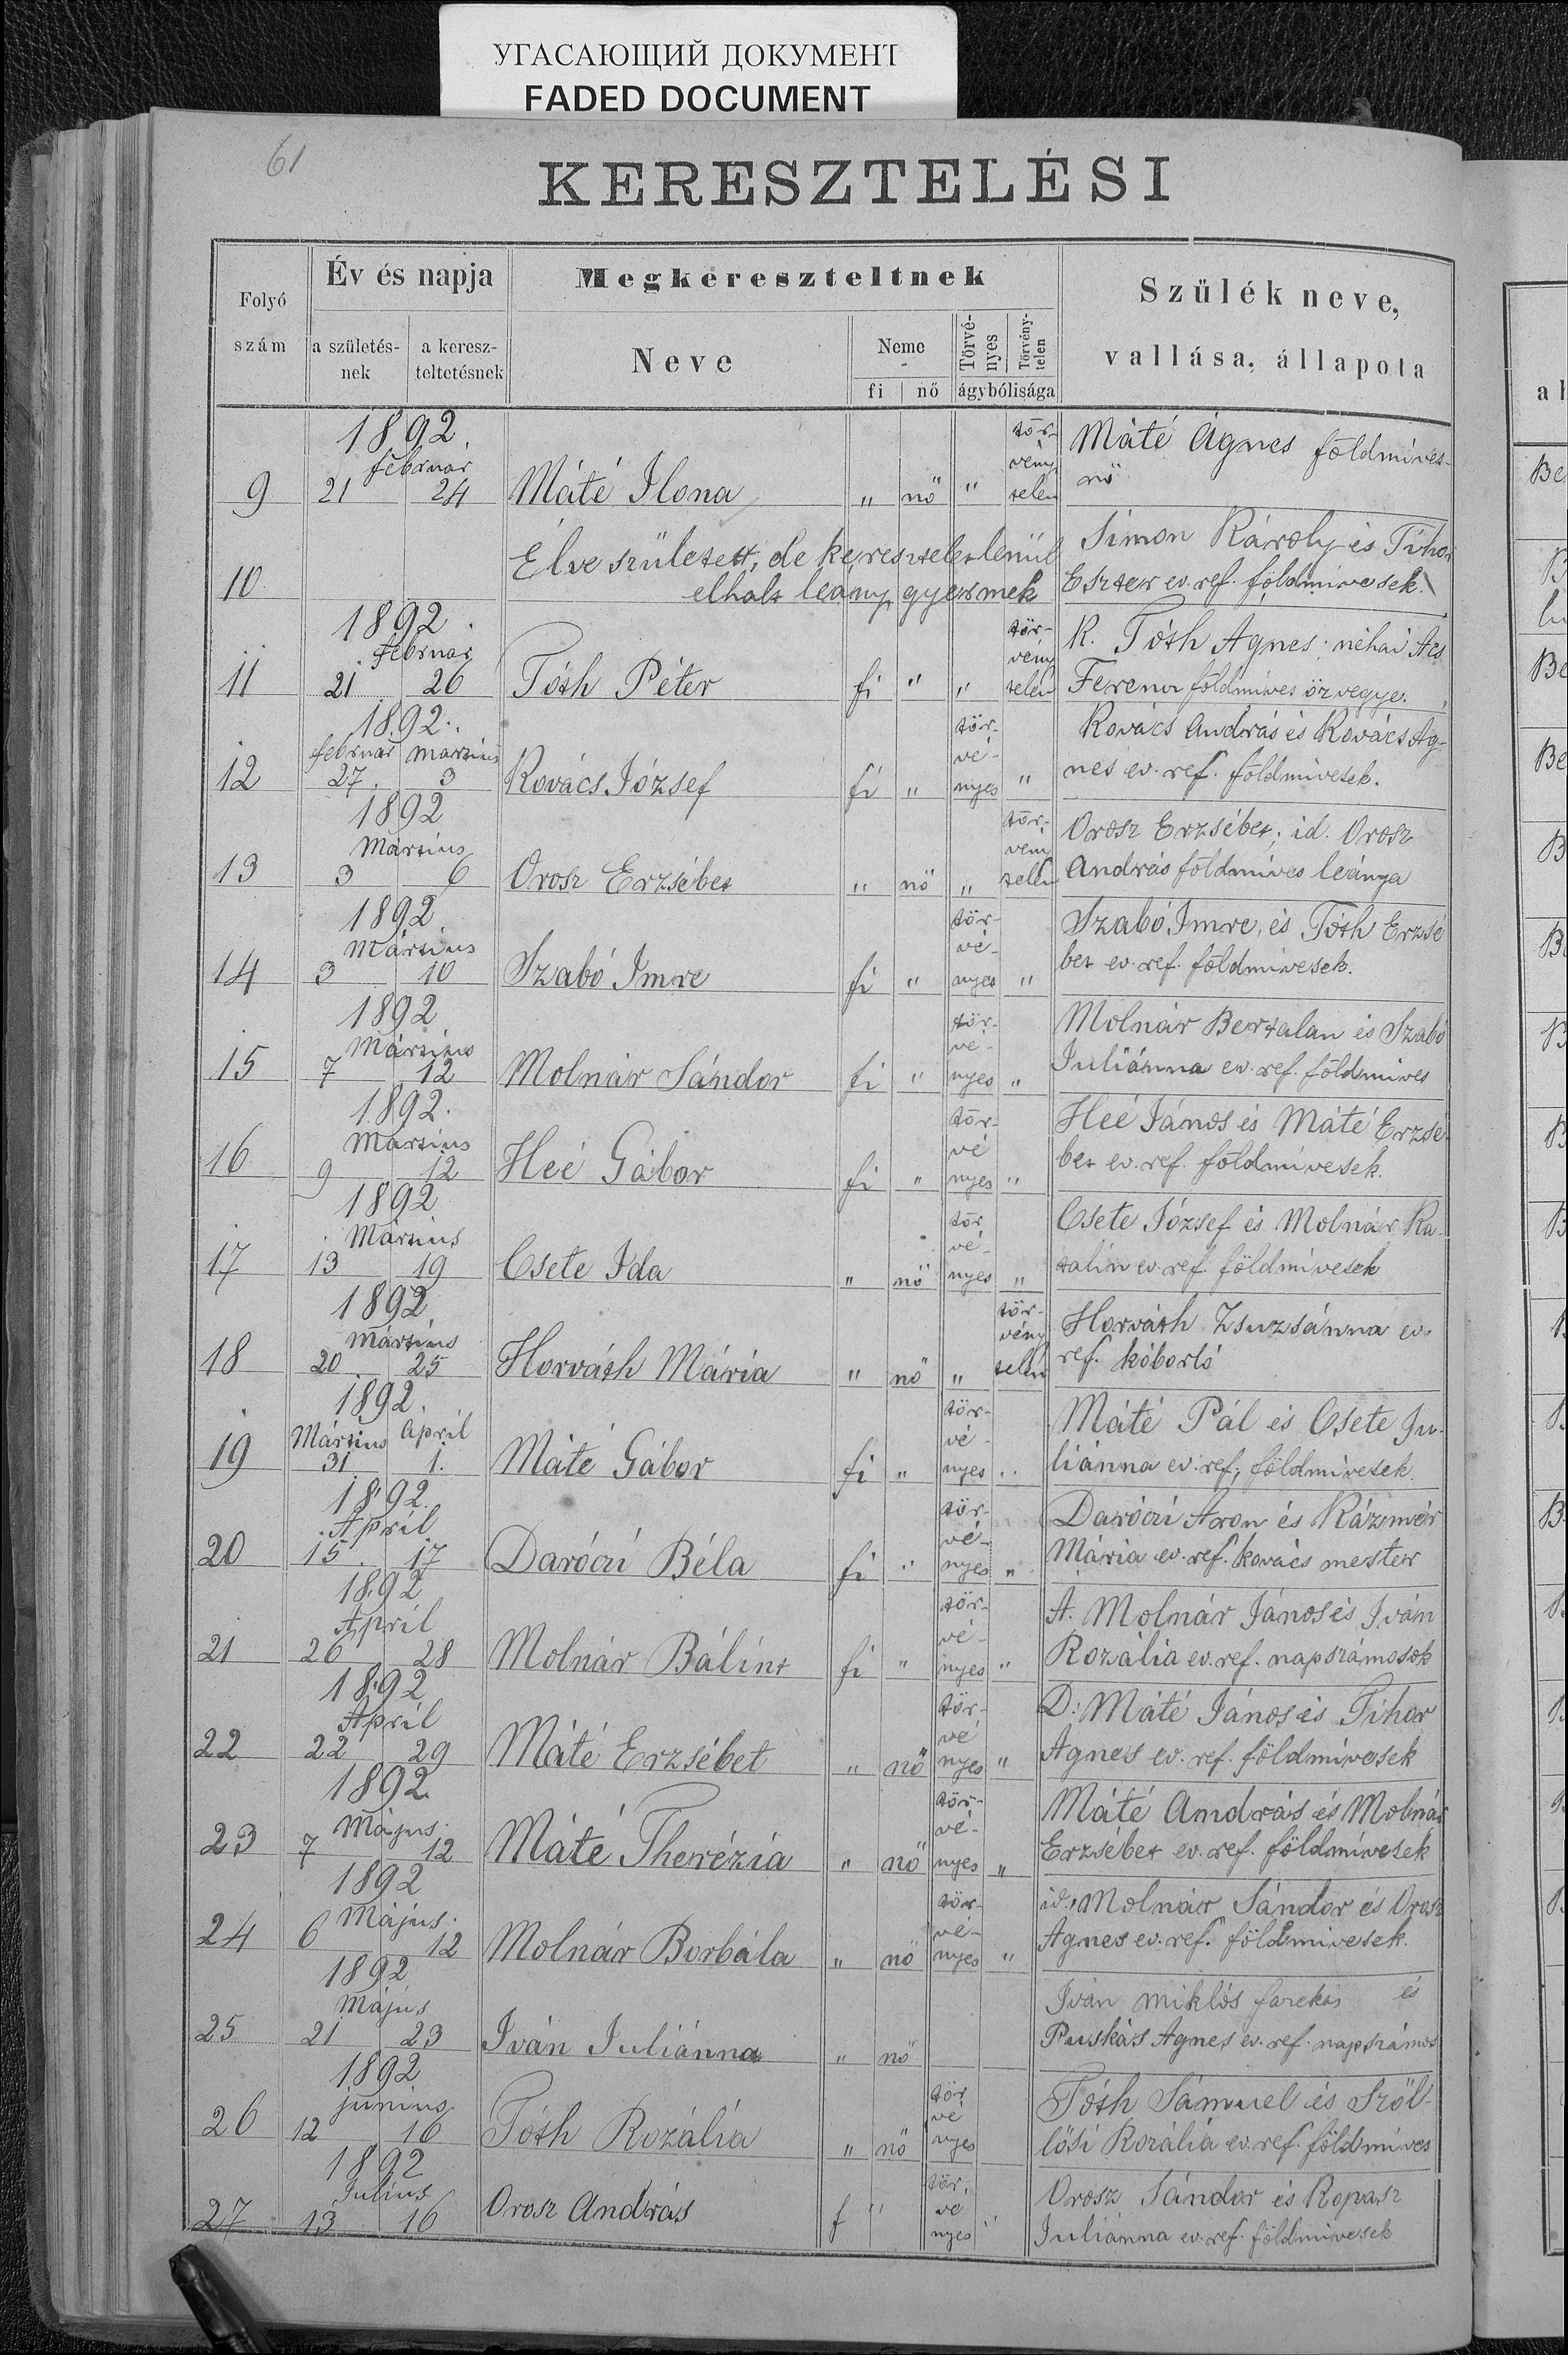 УГАСАЮЩИЙ ДОКУМЕНТ
FADED DOCUMENT
61
KERESZTELÉSI
Folyó szám
Év és napja
a születés-nek
a keresz-teltetésnek
Megkereszteltnek
Neve
Neme
fi nő
Törvé-nyes
Törvény-telen
ágybólisága
Szülék neve,
vallása, állapota
1892.
február
9 21 24 Máté Ilona " nő " tör-vény telen Máté Ágnes földmíves-
nő
10 Élve született, de kereszteletlenül Simon Károly és Tihor
elhalt leány gyermek Eszter ev. ref. földmivesek.
1892.
február
11 21 26 Tóth Péter fi " " tör-vény telen K. Tóth Agnes; néhai Ács
Ferencz földmíves özvegye.
1892.
február martius
12 27. 3 Kovács József fi " tör-vé-nyes " Kovács András és Kovács Ag-
nes ev. ref. földmívesek.
1892
Mártius
13 3 6 Orosz Erzsébet " nő " tör-vény telen Orosz Erzsébet; id. Orosz
András földmíves leánya
1892
Mártius
14 3 10 Szabó Imre fi " tör-vé-nyes " Szabó Imre, és Tóth Erzsé
bet ev. ref. földmívesek.
1892
Mártius
15 7 12 Molnár Sándor fi " tör-vé-nyes " Molnár Bertalan és Szabó
Juliánna ev. ref. földmíves
1892.
Martius
16 9 12 Heé Gábor fi " tör-vé nyes " Heé János és Máté Erzsé-
bet ev. ref. földmívesek.
1892
Mártius
17 13 19 Csete Ida " nő tör vé-nyes " Csete József és Molnár Ka-
talin ev. ref. földmívesek
1892
mártius
18 20 25 Horváth Mária " nő " tör-vény telen Horváth Zsuzsánna ev.
ref. kóborló
1892.
Mártius April
19 31 1. Máté Gábor fi " tör-vé-nyes " Máté Pál és Csete Ju-
liánna ev. ref. földmívesek.
1892.
April
20 15. 17 Daróczi Béla fi " tör-vé-nyes " Daróczi Áron és Kázmér
Mária ev. ref. kovács mester
1892
April
21 26 28 Molnár Bálint fi " tör-vé-nyes " A. Molnár János és Iván
Rozália ev. ref. napszámosok
1892
April
22 22 29 Máté Erzsébet " nő tör-vé nyes " D. Máté János és Tihor
Agnes ev. ref. földmívesek
1892.
Május
23 7 12 Máté Therézia " nő tör-vé-nyes " Máté András és Molnár
Erzsébet ev. ref. földmívesek
1892
Május
24 6 12 Molnár Borbála " nő tör-vé-nyes " id. Molnár Sándor és Orosz
Agnes ev. ref. földmivesek.
1892
Május
25 21 23 Iván Juliánna " nő Iván Miklós farekas és
Puskás Agnes ev. ref. napszámos
1892
junius
26 12 16 Tóth Rozália " nő tör vé nyes Tóth Sámuel és Szöl-
lősi Rozália ev. ref. földmíves
1892
Julius
27 13 16 Orosz András f " tör. vé nyes " Orosz Sándor és Kopasz
Juliánna ev. ref. földmívesek